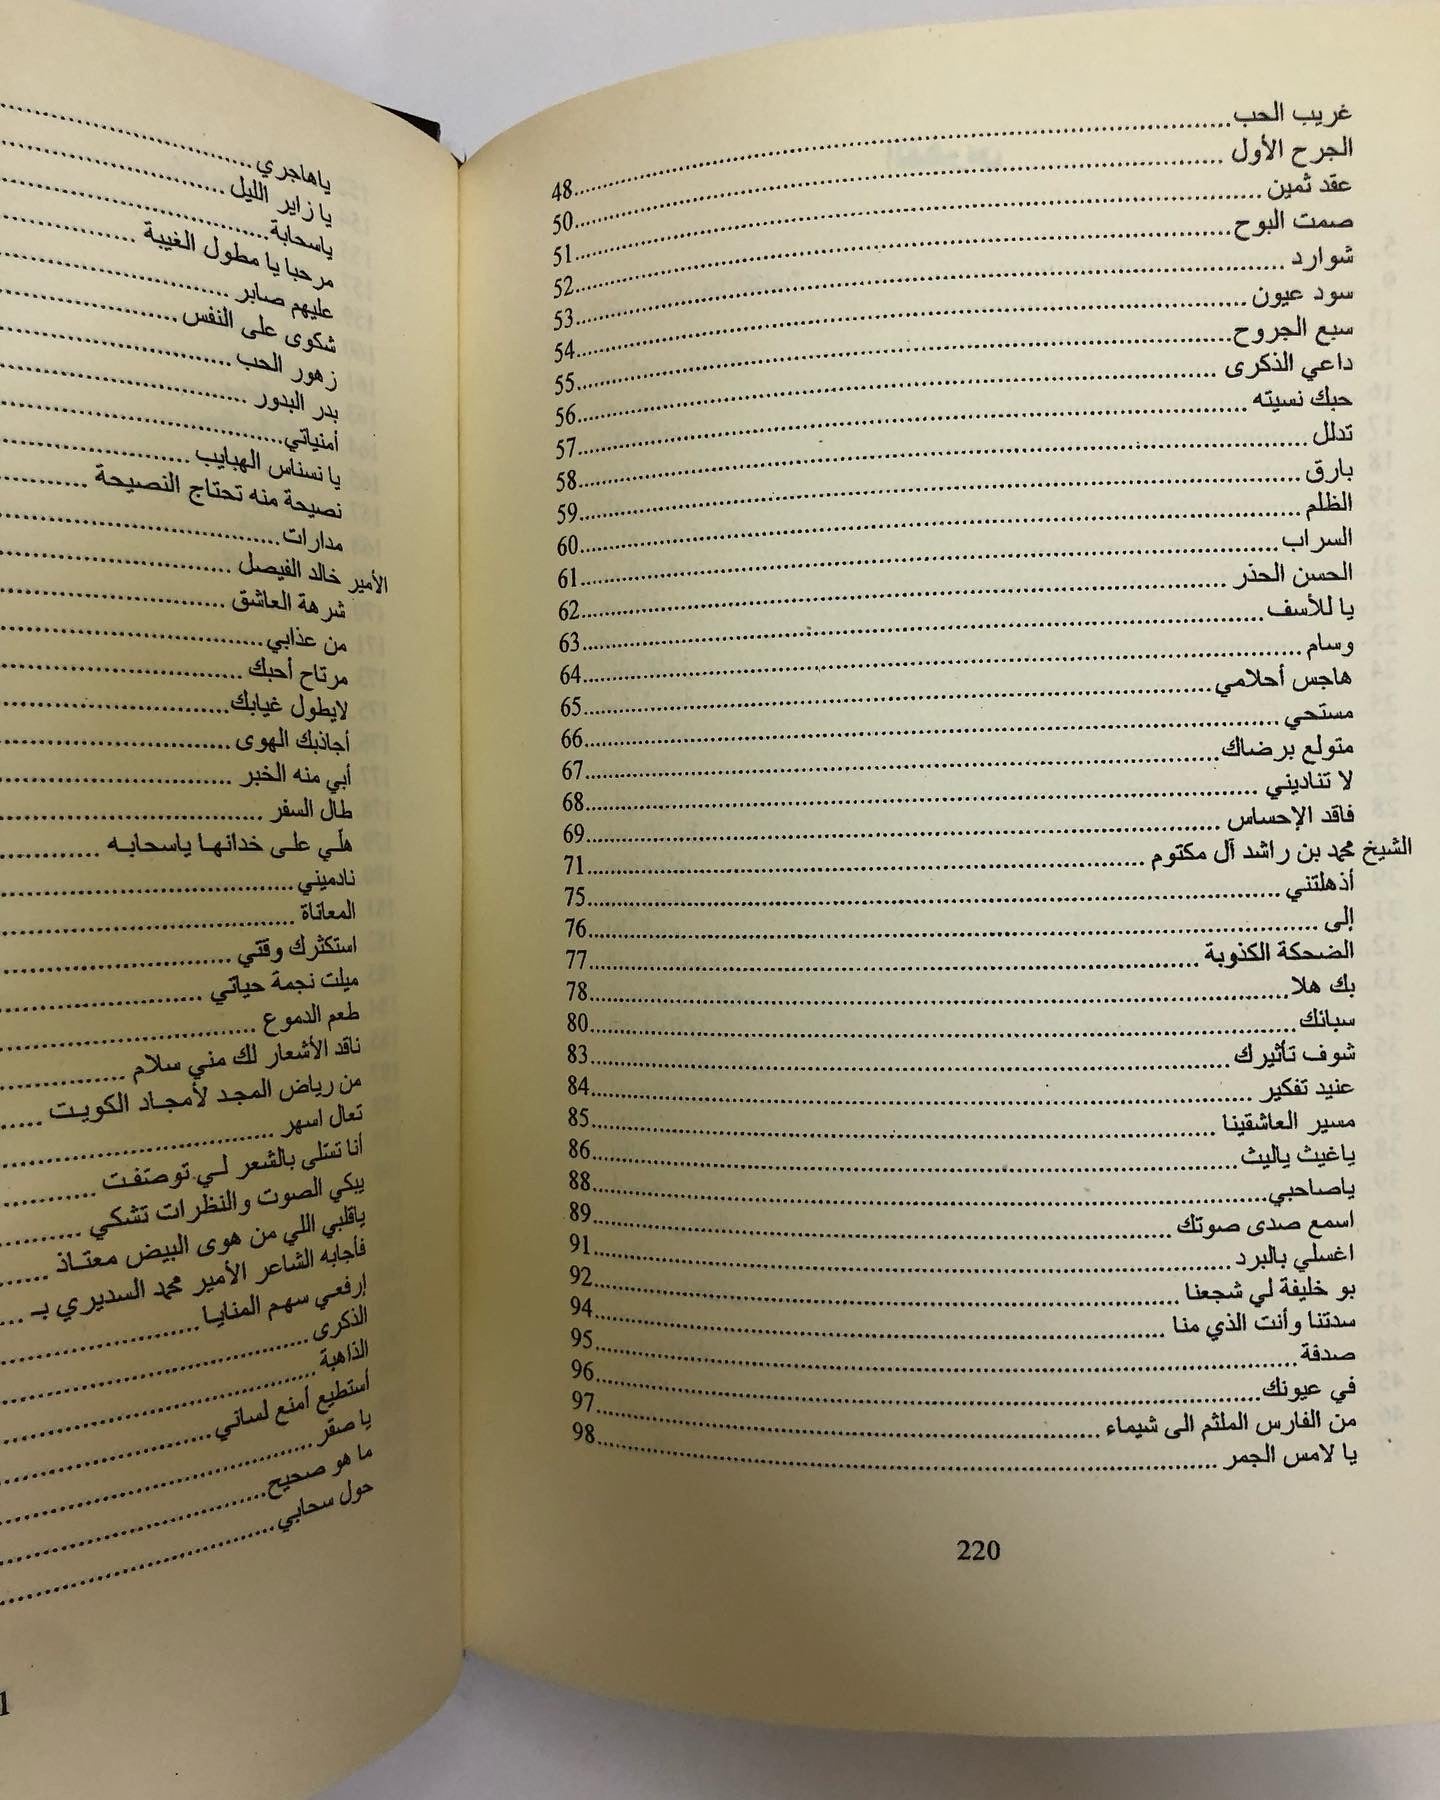 غريب الحب..........48
الجرح الأول..........50
عقد ثمين..........51
صمت البوح..........52
شوارد..........53
سود عيون..........54
سبع الجروح..........55
داعي الذكرى..........56
حبك نسيته..........57
تدلل..........58
بارق..........59
الظلم..........60
السراب..........61
الحسن الحذر..........62
يا للأسف..........63
وسام..........64
هاجس أحلامي..........65
مستحي..........66
متولع برضاك..........67
لا تناديني..........68
فاقد الإحساس..........69
الشيخ محمد بن راشد آل مكتوم..........71
أذهلتني..........75
إلى..........76
الضحكة الكذوبة..........77
بك هلا..........78
سبائك..........80
شوف تأثيرك..........83
عنيد تفكير..........84
مسير العاشقينا..........85
ياغيث ياليث..........86
ياصاحبي..........88
اسمع صدى صوتك..........89
اغسلي بالبرد..........91
بو خليفة لي شجعنا..........92
سدتنا وأنت الذي منا..........94
صدفة..........95
في عيونك..........96
من الفارس الملثم الى شيماء..........97
يا لامس الجمر..........98
220
ياهاجري..........
يا زاير الليل..........
ياسحابة..........
مرحبا يا مطول الغيبة..........
عليهم صابر..........
شكوى على النفس..........
زهور الحب..........
بدر البدور..........
أمنياتي..........
يا نسناس الهبايب..........
نصيحة منه تحتاج النصيحة..........
مدارات..........
الأمير خالد الفيصل..........
شرهة العاشق..........
من عذابي..........
مرتاح أحبك..........
لايطول غيابك..........
أجاذبك الهوى..........
أبي منه الخبر..........
طال السفر..........
هلّي على خدانها ياسحابه..........
نادميني..........
المعاناة..........
استكثرك وقتي..........
ميلت نجمة حياتي..........
طعم الدموع..........
ناقد الأشعار لك مني سلام..........
من رياض المجد لأمجاد الكويت..........
تعال اسهر..........
أنا تستلي بالشعر لي توصتفت..........
يبكي الصوت والنظرات تشكي..........
ياقلبي اللي من هوى البيض معتاذ..........
فأجابه الشاعر الأمير محمد السديري بـ..........
إرفعي سهم المنايا..........
الذكرى..........
الذاهبة..........
أستطيع أمنع لساني..........
يا صقر..........
ما هو صحيح..........
حول سحابي..........
1